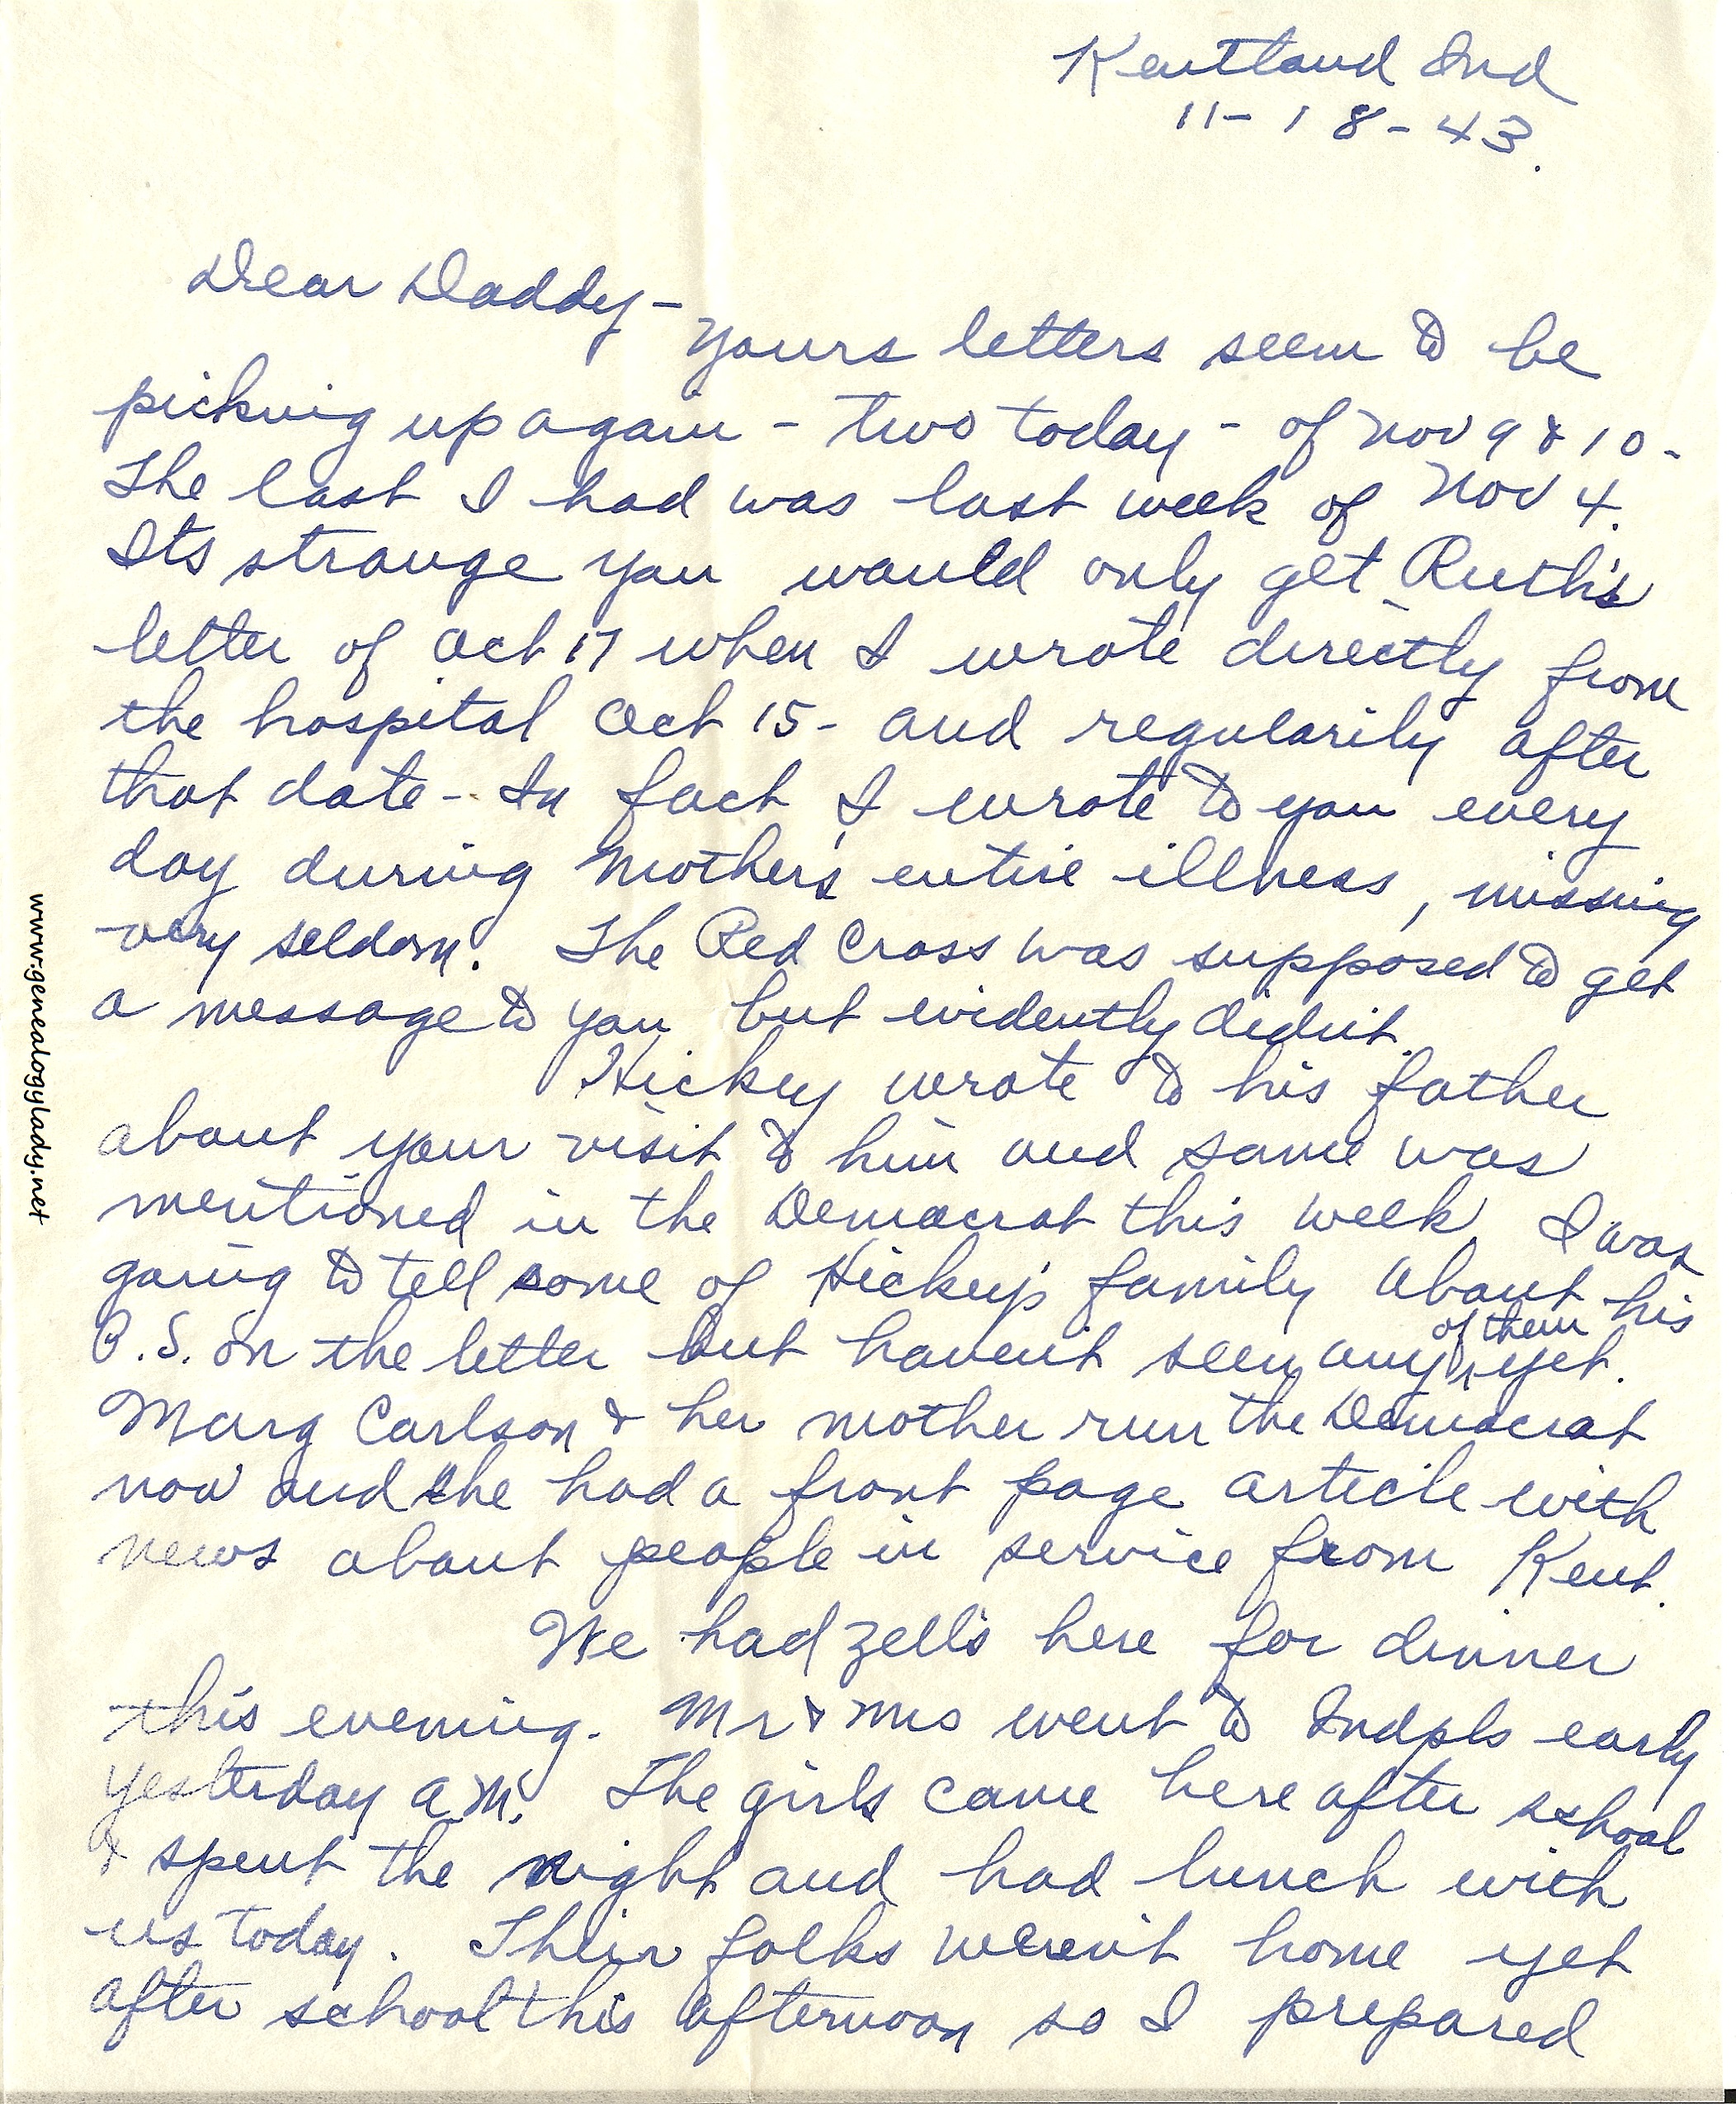 Kentland Ind
11-18-43.
Dear Daddy-
Yours letters seem to be
picking up again - two today - of Nov 9 & 10 -
The last I had was last week of Nov 4.
Its strange you would only get Ruth's
letter of Oct 17 when I wrote directly from
the hospital Oct 15- and regularily after
that date - In fact I wrote to you every
day during Mother's entire illness, missing
very seldom. The Red Cross was supposed to get
a message to you but evidently didn't.
Hickey wrote to his father
about your visit to him and same was
mentioned in the Democrat this week. I was
going to tell some of Hickey's family about his
P.S. on the letter but haven't seen any of them yet.
Marg Carlson & her mother run the Democrat
now and she had a front page article with
news about people in service from Kent.
We had Zell's here for dinner
this evening. Mr & Mrs went to Indpls early
yesterday a.m. The girls came here after school
& spent the night and had lunch with
us today. Their folks weren't home yet
after school this afternoon so I prepared
www.genealogylady.net